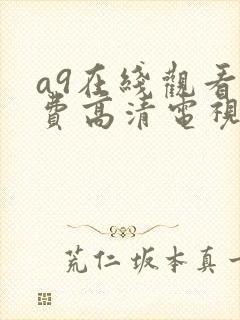 a9在綫觀看
費高清電視
荒仁坂本真一